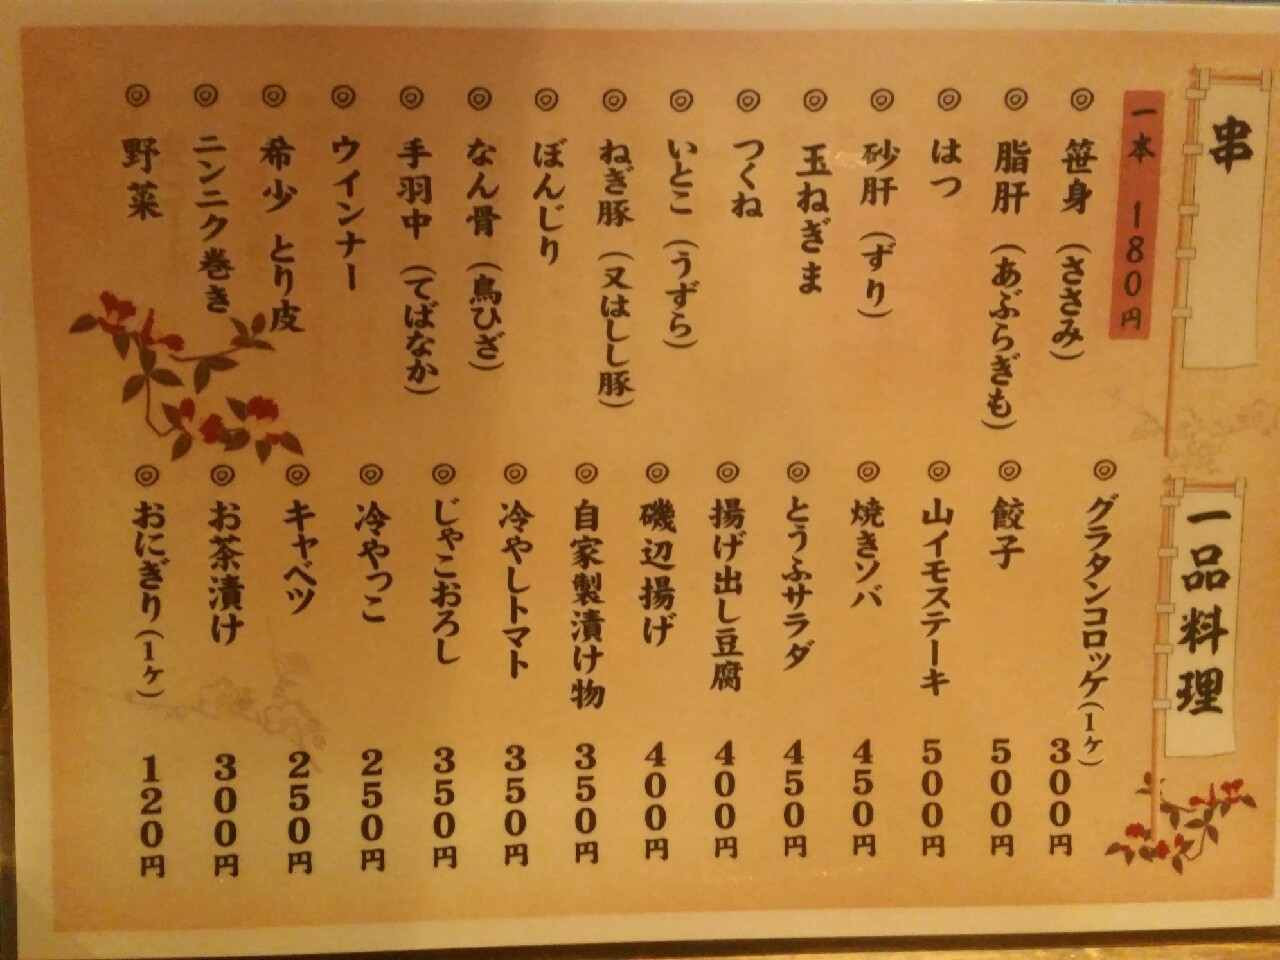 串
一本 180円
◎ 笹身（ささみ）
◎ 脂肝（あぶらぎも）
◎ はつ
◎ 砂肝（ずり）
◎ 玉ねぎま
◎ つくね
◎ いとこ（うずら）
◎ ねぎ豚（又はしし豚）
◎ ぼんじり
◎ なん骨（鳥ひざ）
◎ 手羽中（てばなか）
◎ ウインナー
◎ 希少 とり皮
◎ ニンニク巻き
◎ 野菜
一品料理
◎ グラタンコロッケ（1ヶ） 300円
◎ 餃子 500円
◎ 山イモステーキ 500円
◎ 焼きソバ 450円
◎ とうふサラダ 450円
◎ 揚げ出し豆腐 400円
◎ 磯辺揚げ 400円
◎ 自家製漬け物 350円
◎ 冷やしトマト 350円
◎ じゃこおろし 350円
◎ 冷やっこ 250円
◎ キャベツ 250円
◎ お茶漬け 300円
◎ おにぎり（1ヶ） 120円